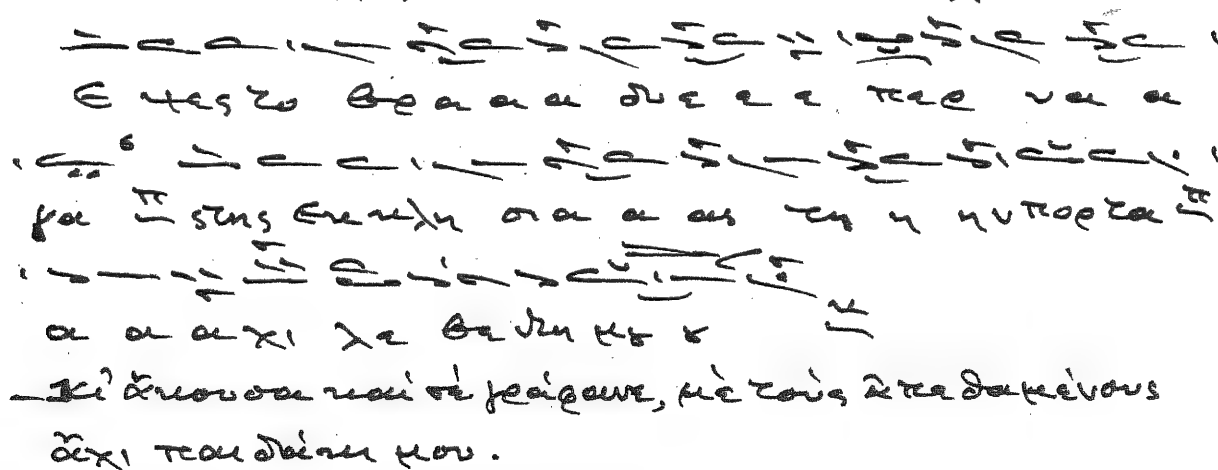 Ε ψες το βρα α α δυ ε ε ε περ να α
γα π στης Εκ κλη σια α ας τη η ην πορτα π
α α α χι λε βε ντη μȣ ȣ
—Κι ἄκουσα καί σέ γράφανε, μέ τούς ἀπεθαμένους
ἄχι παιδάκι μου.